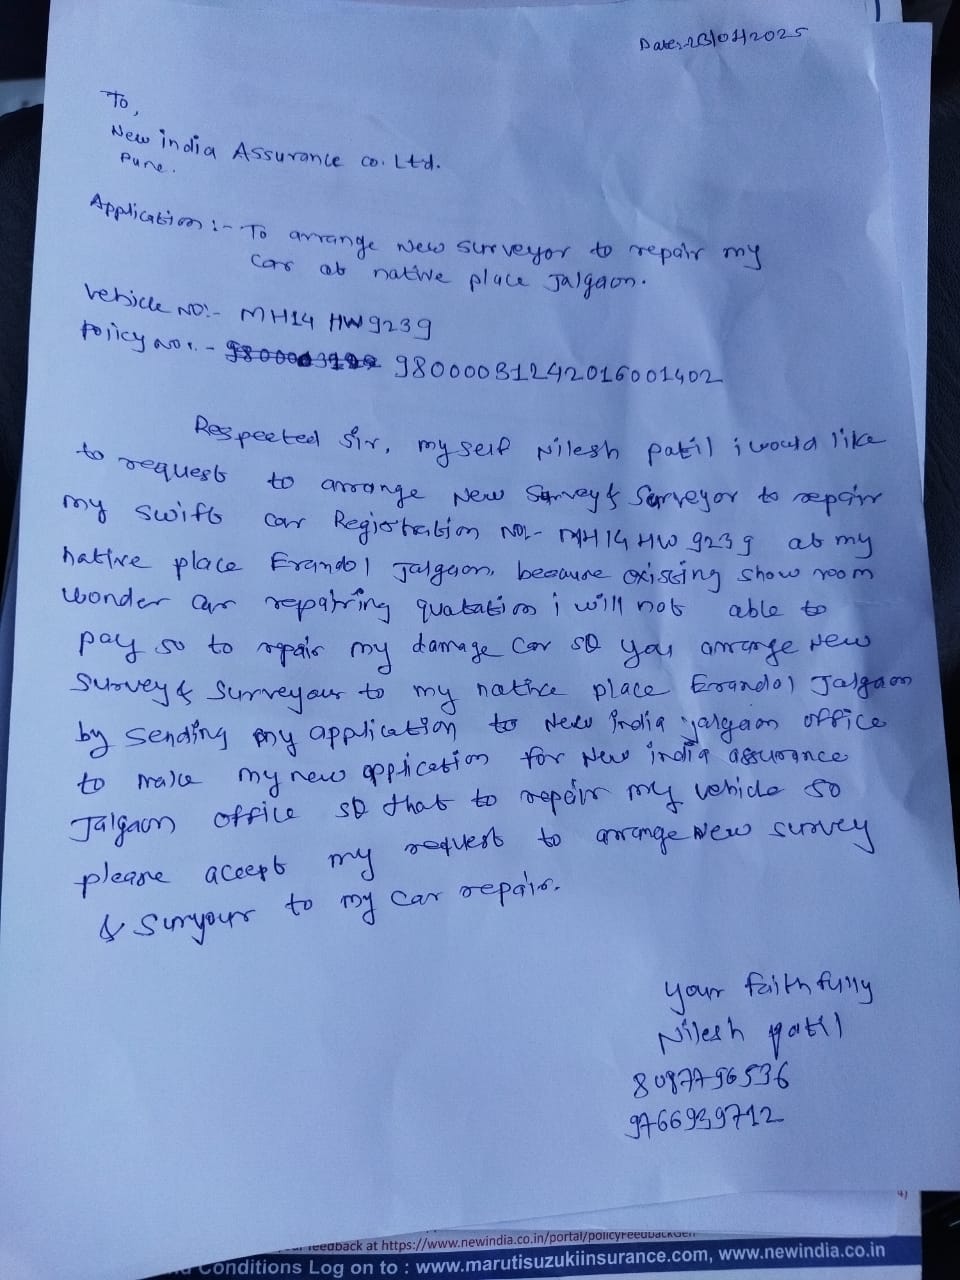 Date:-23/01/2025
To,
New india Assurance co. Ltd.
Pune.
Application :- To arrange New surveyor to repair my
Car at native place Jalgaon.
Vehicle NO:- MH14 HW9239
Policy no. :- 98000031242016001402
Respected Sir, myself Nilesh patil i would like
to request to arrange New Survey & Surveyor to repair
my swift car Registration NO:- MH14 HW 9239 at my
native place Erandol Jalgaon, because existing show room
wonder car repairing quatation i will not able to
pay so to repair my damage car so you arrange New
Survey & Surveyour to my native place Erandol Jalgaon
by sending my application to New india jalgaon office
to make my new application for New india assurance
Jalgaon office so that to repair my vehicle so
please accept my request to arrange New survey
& Suryour to my car repair.
your faithfully
Nilesh patil
8087796536
9766939712
feedback at https://www.newindia.co.in/portal/policy
Conditions Log on to : www.marutisuzukiinsurance.com, www.newindia.co.in